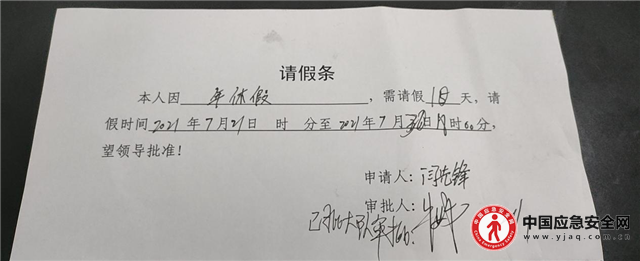 请假条
本人因 年休假 ，需请假 10 天，请
假时间 2021 年 7 月 21 日 时 分至 2021 年 7 月 30 日 时 60 分，
望领导批准！
申请人：闫先锋
审批人：
中国应急安全网
www.yjaq.com.cn